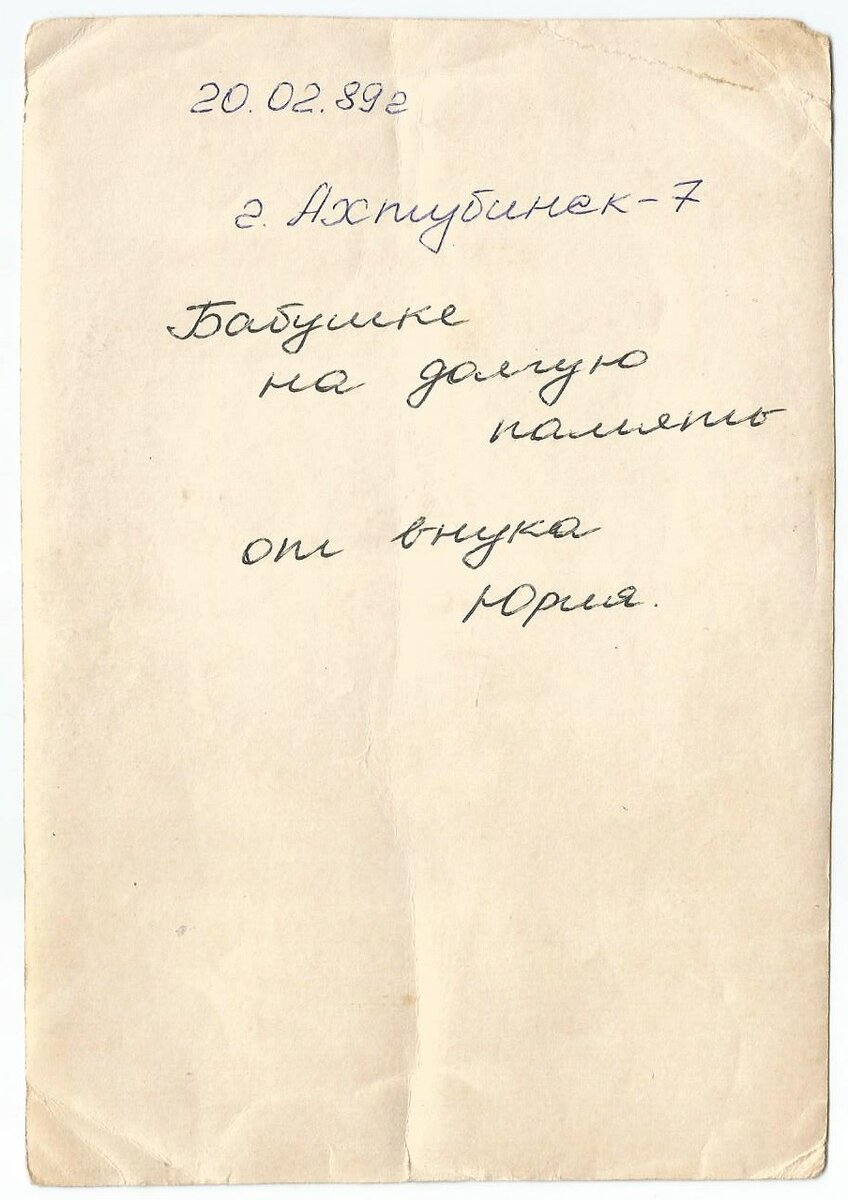 20.02.89г
г. Ахтубинск-7
Бабушке
на долгую
память
от внука
Юрия.